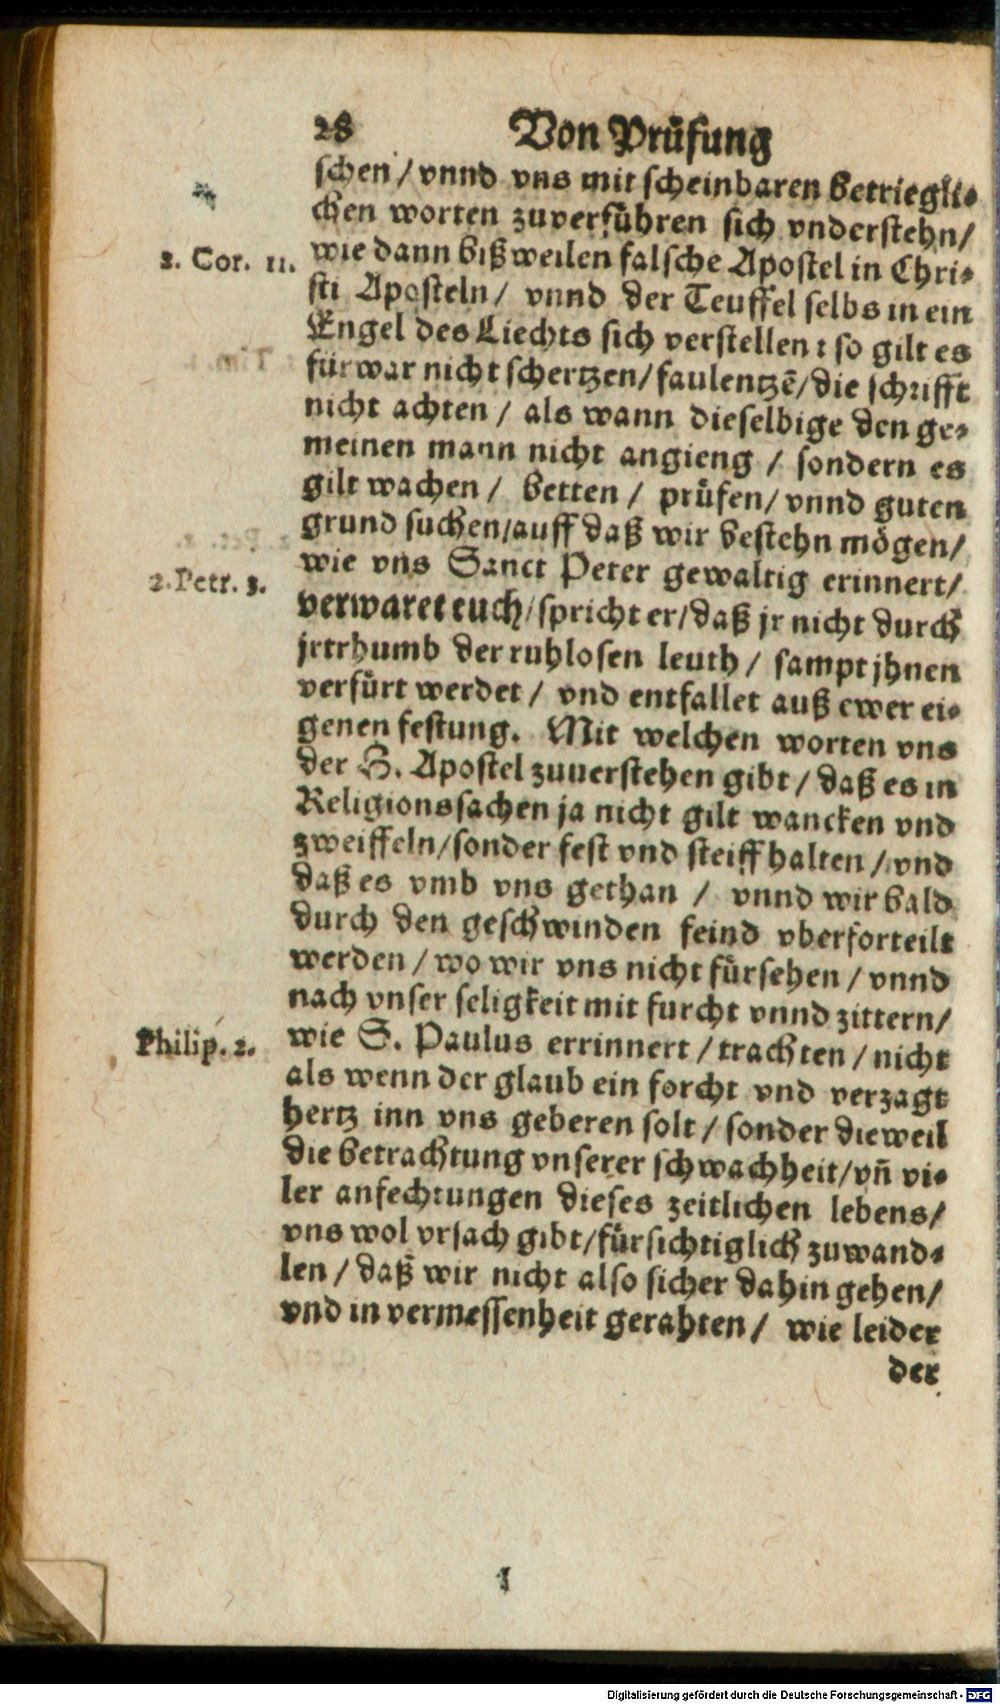 28 Von Prüfung
schen / vnnd vns mit scheinbaren betriegli⸗
chen worten zuverführen sich vnderstehn /
2. Cor. 11. wie dann bißweilen falsche Apostel in Chri⸗
sti Aposteln / vnnd der Teuffel selbs in ein
Engel des Liechts sich verstellen : so gilt es
fürwar nicht schertzen / faulentzẽ / die schrifft
nicht achten / als wann dieselbige den ge⸗
meinen mann nicht angieng / sondern es
gilt wachen / betten / prüfen / vnnd guten
grund suchen / auff daß wir bestehn mögen /
wie vns Sanct Peter gewaltig erinnert /
2. Petr. 3. verwaret euch / spricht er / daß jr nicht durch
jrrthumb der ruhlosen leuth / sampt jhnen
verfürt werdet / vnd entfallet auß ewer ei⸗
genen festung. Mit welchen worten vns
der H. Apostel zuuerstehen gibt / daß es in
Religionssachen ja nicht gilt wancken vnd
zweiffeln / sonder fest vnd steiff halten / vnd
daß es vmb vns gethan / vnnd wir bald
durch den geschwinden feind vberforteilt
werden / wo wir vns nicht fürsehen / vnnd
nach vnser seligkeit mit furcht vnnd zittern /
Philip. 2. wie S. Paulus errinnert / trachten / nicht
als wenn der glaub ein forcht vnd verzagt
hertz inn vns geberen solt / sonder dieweil
die betrachtung vnserer schwachheit / vñ vi⸗
ler anfechtungen dieses zeitlichen lebens /
vns wol vrsach gibt / fürsichtiglich zuwand⸗
len / daß wir nicht also sicher dahin gehen /
vnd in vermessenheit gerahten / wie leider
der
Digitalisierung gefördert durch die Deutsche Forschungsgemeinschaft - DFG